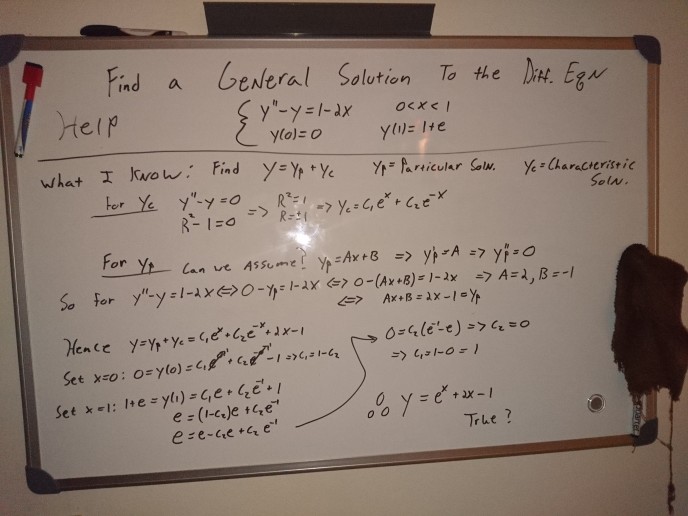 Find a General Solution To the Diff. Eqn
Help { y''-y=1-2x 0<x<1
y(0)=0 y(1)=1+e
What I Know: Find y=yp+yc yp=Particular Soln. yc=Characteristic Soln.
For yc y''-y=0 => R²=1 => yc=c₁eˣ+c₂e⁻ˣ
R²-1=0 R=±1
For yp Can we Assume? yp=Ax+B => y'p=A => y''p=0
So for y''-y=1-2x <=> 0-yp=1-2x <=> 0-(Ax+B)=1-2x => A=2, B=-1
<=> Ax+B=2x-1=yp
Hence y=yp+yc=c₁eˣ+c₂e⁻ˣ+2x-1
Set x=0: 0=y(0)=c₁e⁰+c₂e⁰-1=>c₁=1-c₂
Set x=1: 1+e=y(1)=c₁e+c₂e⁻¹+1
e=(1-c₂)e+c₂e⁻¹
e=e-c₂e+c₂e⁻¹
0=c₂(e⁻¹-e)=>c₂=0
=>c₁=1-0=1
∴ y=eˣ+2x-1
True?